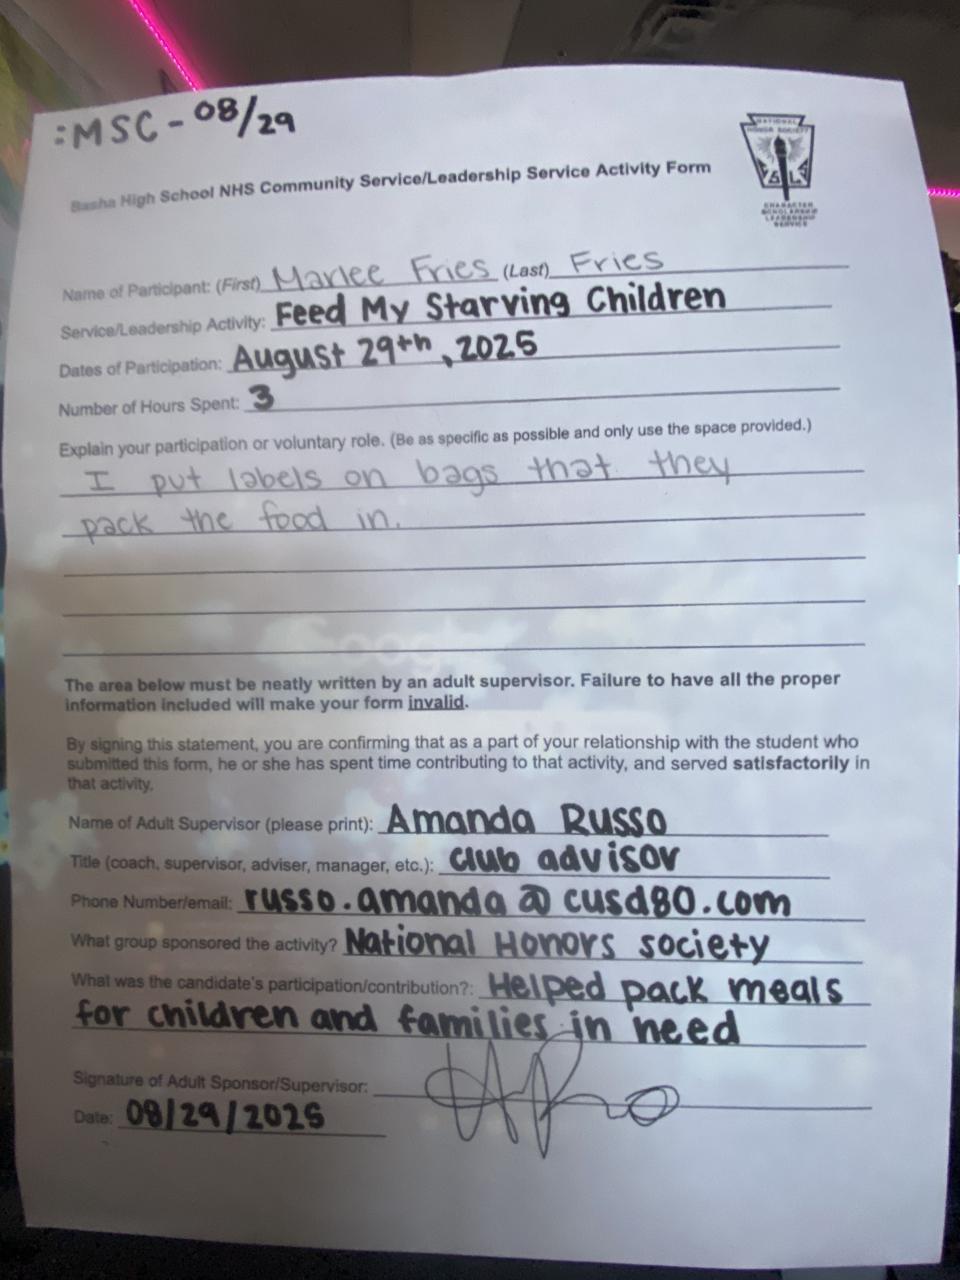 :MSC-08/29
NATIONAL
HONOR SOCIETY
S L
CHARACTER
SCHOLARSHIP
LEADERSHIP
SERVICE
Basha High School NHS Community Service/Leadership Service Activity Form
Name of Participant: (First) Marlee Fries (Last) Fries
Service/Leadership Activity: Feed My Starving Children
Dates of Participation: August 29th, 2025
Number of Hours Spent: 3
Explain your participation or voluntary role. (Be as specific as possible and only use the space provided.)
I put labels on bags that they
pack the food in.
The area below must be neatly written by an adult supervisor. Failure to have all the proper
information included will make your form invalid.
By signing this statement, you are confirming that as a part of your relationship with the student who
submitted this form, he or she has spent time contributing to that activity, and served satisfactorily in
that activity.
Name of Adult Supervisor (please print): Amanda Russo
Title (coach, supervisor, adviser, manager, etc.): club advisor
Phone Number/email: russo.amanda@cusd80.com
What group sponsored the activity? National Honors society
What was the candidate's participation/contribution?: Helped pack meals
for children and families in need
Signature of Adult Sponsor/Supervisor:
Date: 08/29/2025